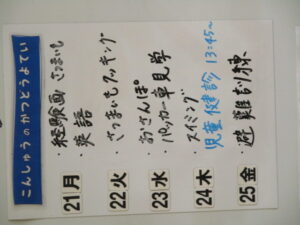 こんしゅうのかつどうよてい
21月
・経験画 さつまいも
・英語
22火
・さつまいもクッキング
23水
・おさんぽ
・パッカー車見学
24木
・スイミング
児童健診 13:45〜
25金
・避難訓練